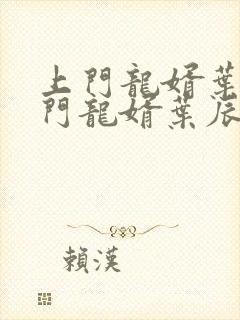 上門龍婿葉
門龍婿葉辰
賴漢